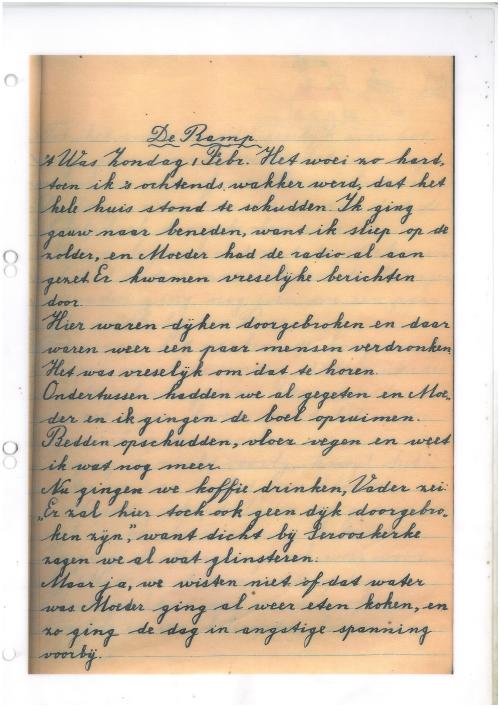 De Ramp
't Was Zondag 1 Febr. Het woei zo hard,
toen ik 's ochtends wakker werd, dat het
hele huis stond te schudden. Ik ging
gauw naar beneden, want ik sliep op de
zolder, en Moeder had de radio al aan
gezet. Er kwamen vreselijke berichten
door.
Hier waren dijken doorgebroken en daar
waren weer een paar mensen verdronken.
Het was vreselijk om dat te horen.
Ondertussen hadden we al gegeten en Moe-
der en ik gingen de boel opruimen.
Bedden opschudden, vloer vegen en weet
ik wat nog meer.
Nu gingen we koffie drinken, Vader zei:
„Er zal hier toch ook geen dijk doorgebro-
ken zijn", want dicht bij Serooskerke
zagen we al wat glinsteren.
Maar ja, we wisten niet of dat water
was Moeder ging al weer eten koken, en
zo ging de dag in angstige spanning
voorbij.